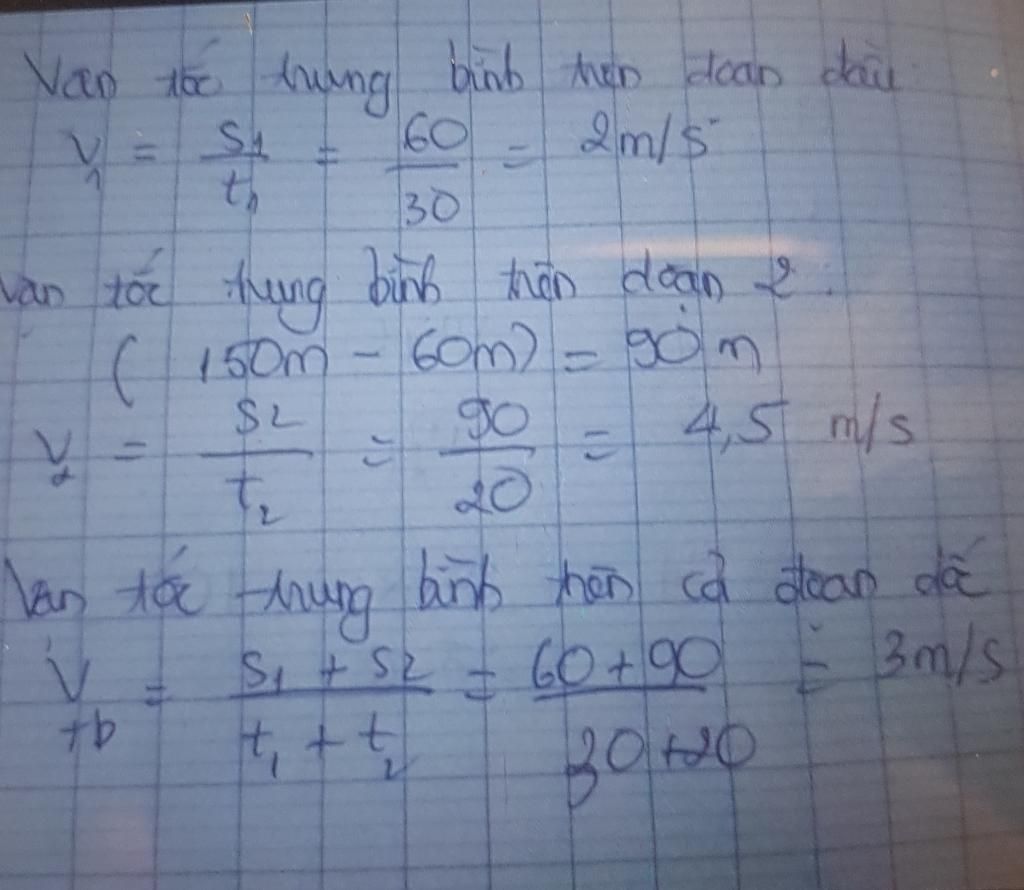 Van tốc trung bình trên doan dầu
V₁ = S1/t₁ = 60/30 = 2m/s
Vận tốc trung bình trên doạn 2:
( 150m - 60m) = 90 m
V₂ = S2/t₂ = 90/20 = 4,5 m/s
Van tốc trung bình trên cả đoan dốc
Vtb = S₁ + S2/t₁ + t₂ = 60+90/30+20 = 3m/s